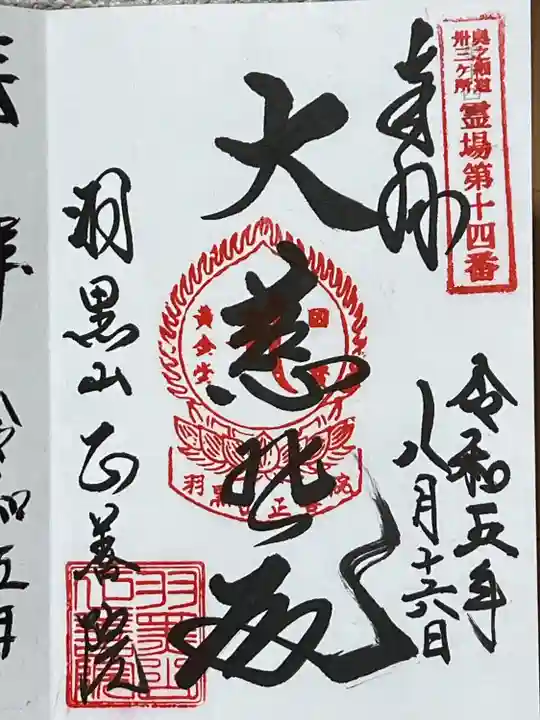 奥之細道
卅三ヶ所
霊場第十四番
奉拝
令和五年
八月十六日
大慈悲殿
國
黄金堂
羽黒山正善院
羽黒山正善院
令和五年